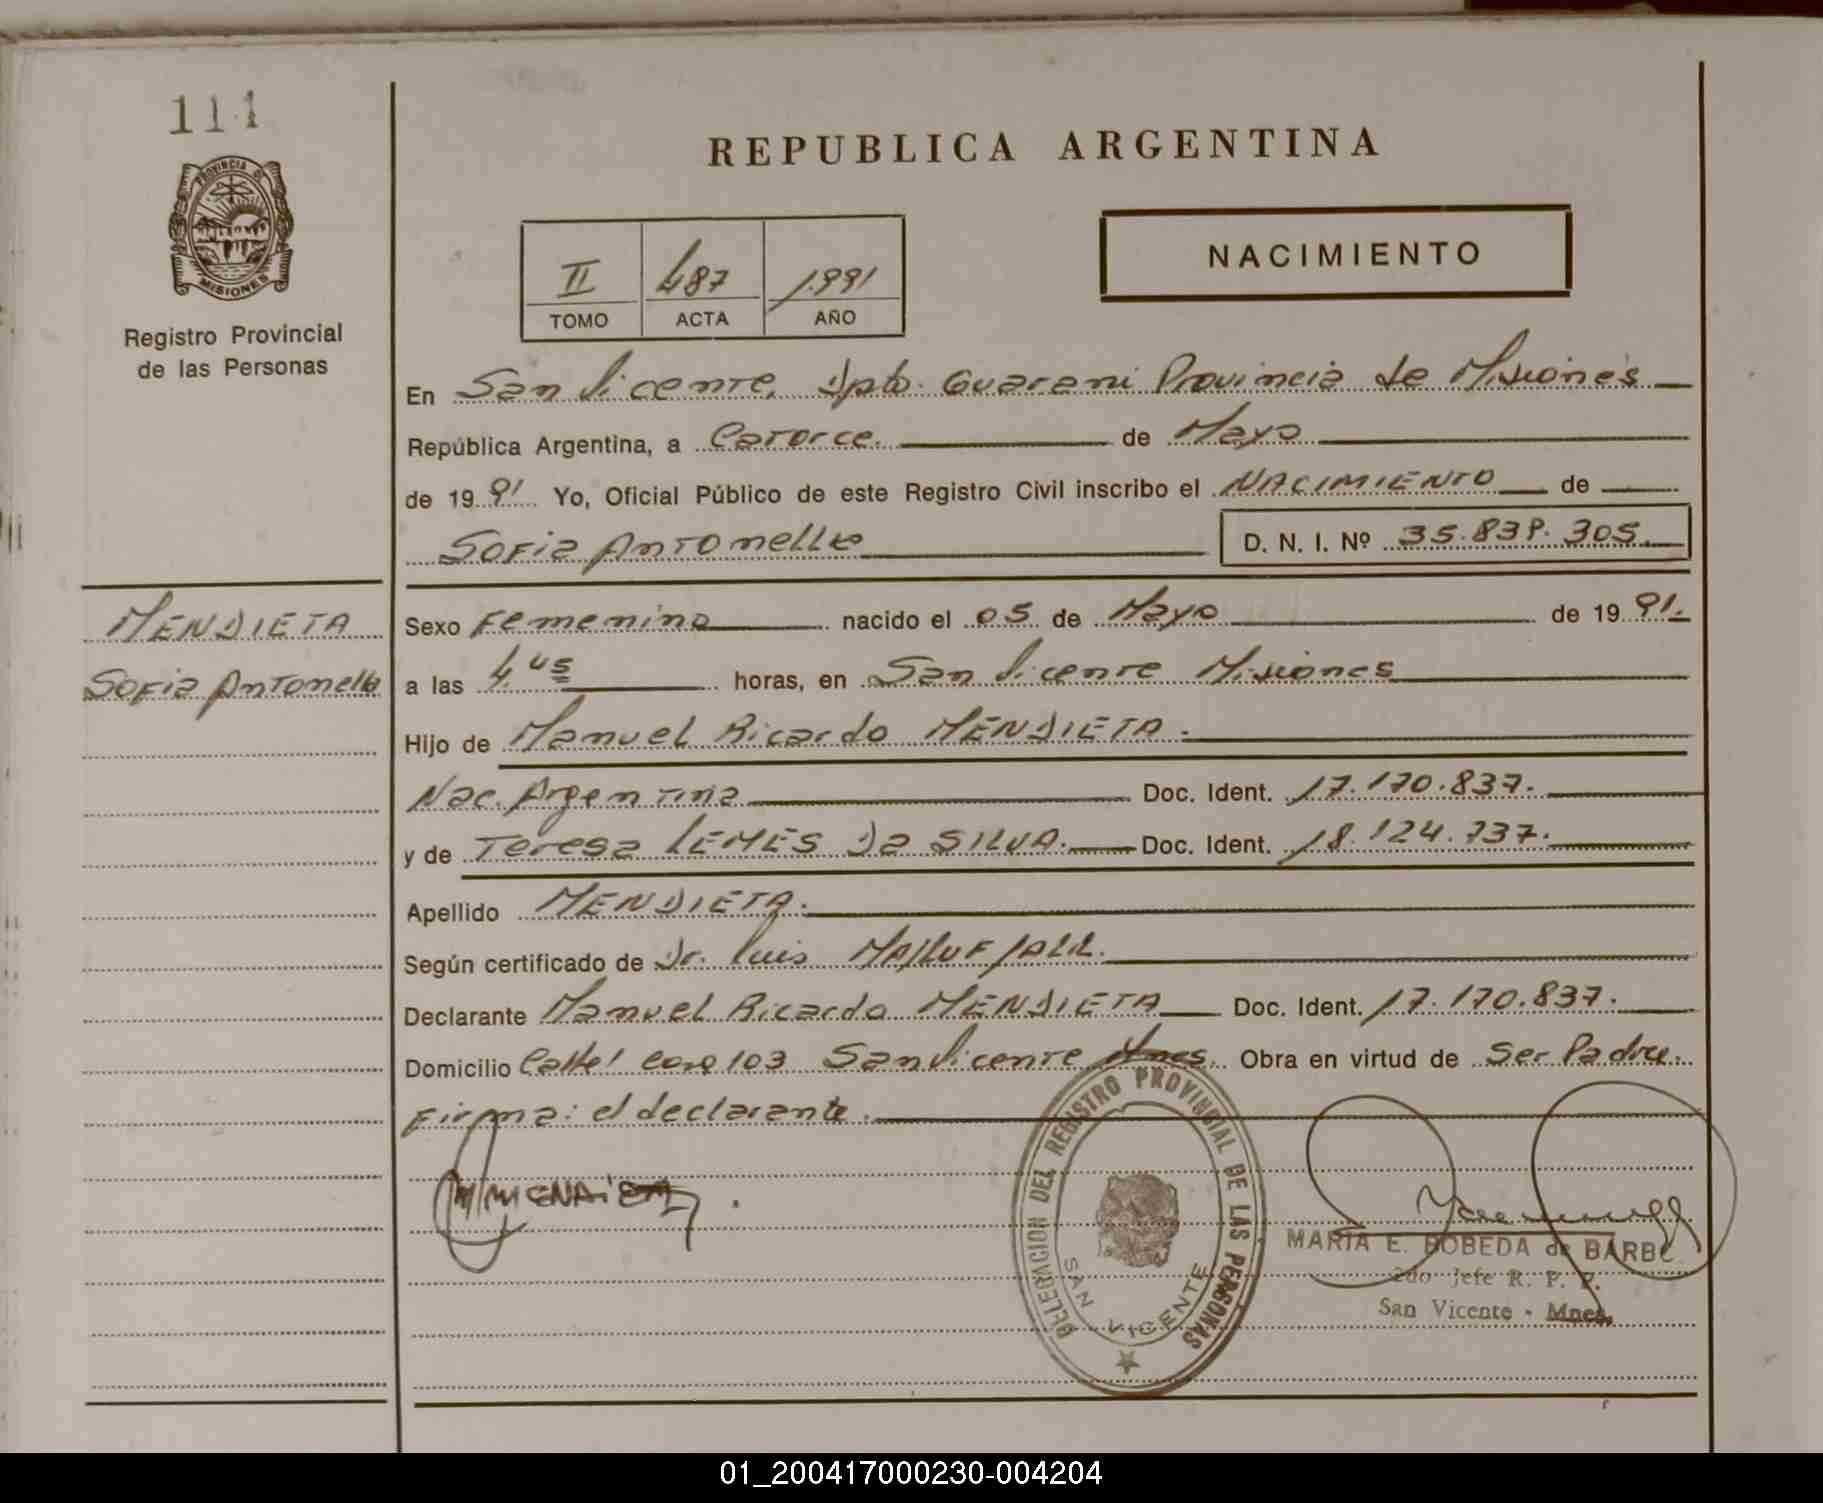 111
PROVINCIA DE
MISIONES
Registro Provincial
de las Personas
REPUBLICA ARGENTINA
NACIMIENTO
II 487 1991
TOMO ACTA AÑO
En San Vicente, Dpto. Guarani Provincia de Misiones
República Argentina, a Catorce. de Mayo
de 19 91 Yo, Oficial Público de este Registro Civil inscribo el NACIMIENTO de
Sofia Antonella
D. N. I. Nº 35.839.305.
MENDIETA
Sofia Antonella
Sexo Femenino nacido el 05 de Mayo de 19 91.
a las 4 horas, en San Vicente Misiones
Hijo de Manuel Ricardo MENDIETA.
Nac. Argentina Doc. Ident. 17.170.837.
y de Teresa LEMES Da SILVA. Doc. Ident. 18.124.737.
Apellido MENDIETA.
Según certificado de Dr. Luis
Declarante Manuel Ricardo MENDIETA Doc. Ident. 17.170.837.
Domicilio 103 San Vicente Mnes. Obra en virtud de Ser Padre.
Firma: el declarante.
DELEGACION DEL REGISTRO PROVINCIAL DE LAS PERSONAS
SAN VICENTE
MARIA E. BOBEDA de BARBE
2do Jefe R. P. P.
San Vicente - Mnes.
01_200417000230-004204